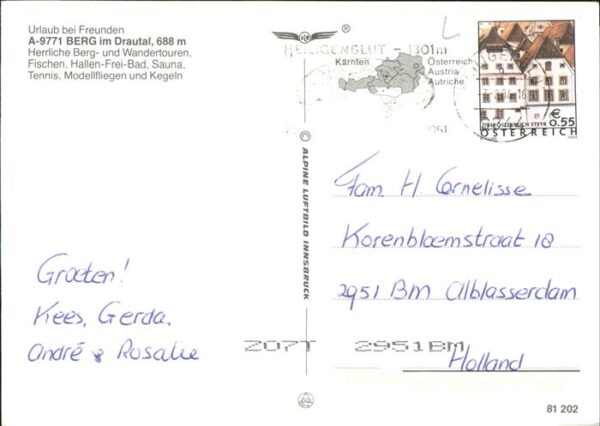 Urlaub bei Freunden
A-9771 BERG im Drautal, 688 m
Herrliche Berg- und Wandertouren,
Fischen, Hallen-Frei-Bad, Sauna,
Tennis, Modellfliegen und Kegeln
®
HEILIGENBLUT - 1301m
Kärnten
Österreich
Austria
Autriche
€
0.55
OBERÖSTERREICH STEYR
ÖSTERREICH
© ALPINE LUFTBILD INNSBRUCK
Fam. H Cornelisse
Korenbloemstraat 18
2951 BM Alblasserdam
Holland
Groeten!
Kees, Gerda,
André & Rosalie
207T 2951BM
81 202